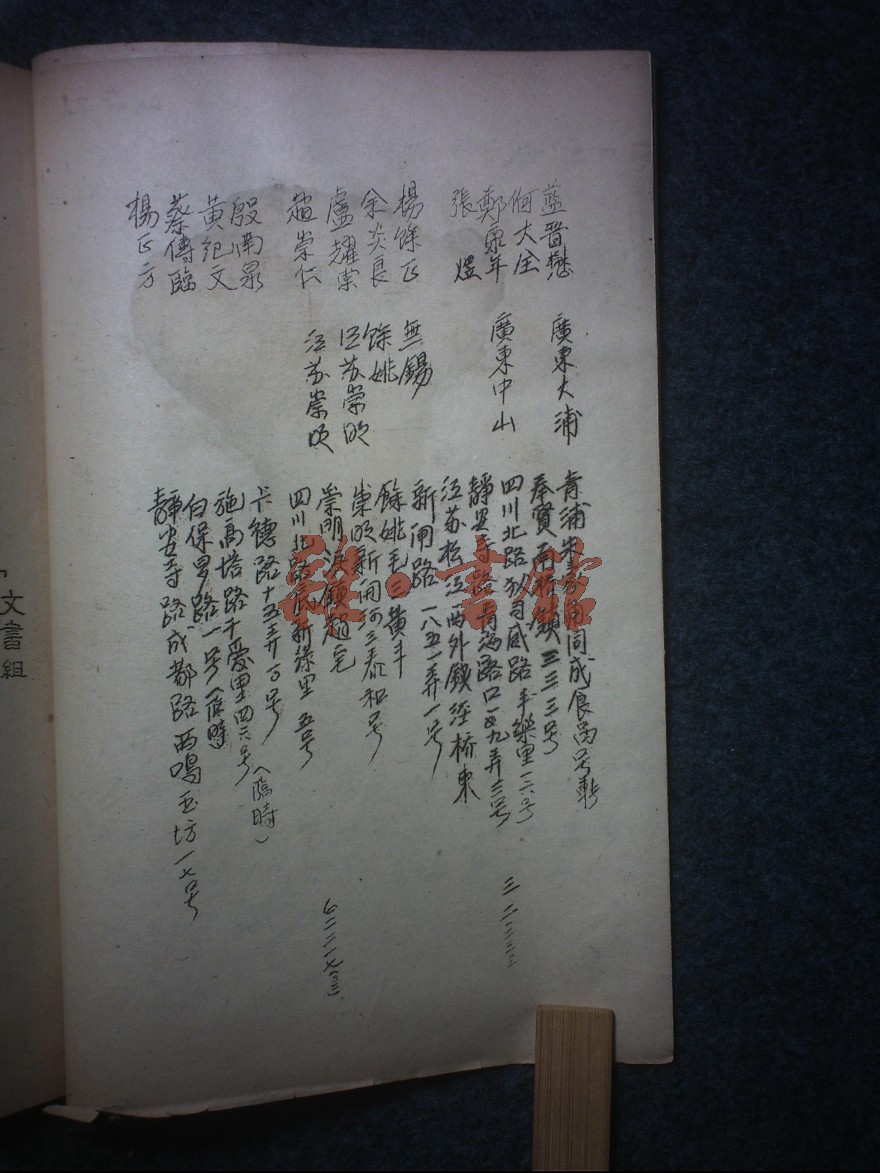 藍晉懋 廣東大浦 青浦朱家角同成食品号轉
何大全 奉賢南桥鎮三三三号
鄭泉年 廣東中山 四川北路狄司威路丰樂里一六号 三二三三三
張煜 靜安寺路青海路口一四九弄三号
江苏松江西外鐵徑桥東
楊餘正 無錫 新闸路一八五一弄一号
余炎良 餘姚 餘姚毛三黄丰
盧耀宗 江苏崇明 崇明新開河三泰和号
趙崇仁 江苏崇明 崇明浜鎮趙宅
四川北路新綠里五号 六二二一七
殷南泉 卡德路十五弄百号（臨時）
黃紀文 施高塔路千愛里四六号
蔡傳臨 白保罗路一号（臨時
楊正方 靜安寺路成都路西鳴玉坊一七号
文書組
雜·書館